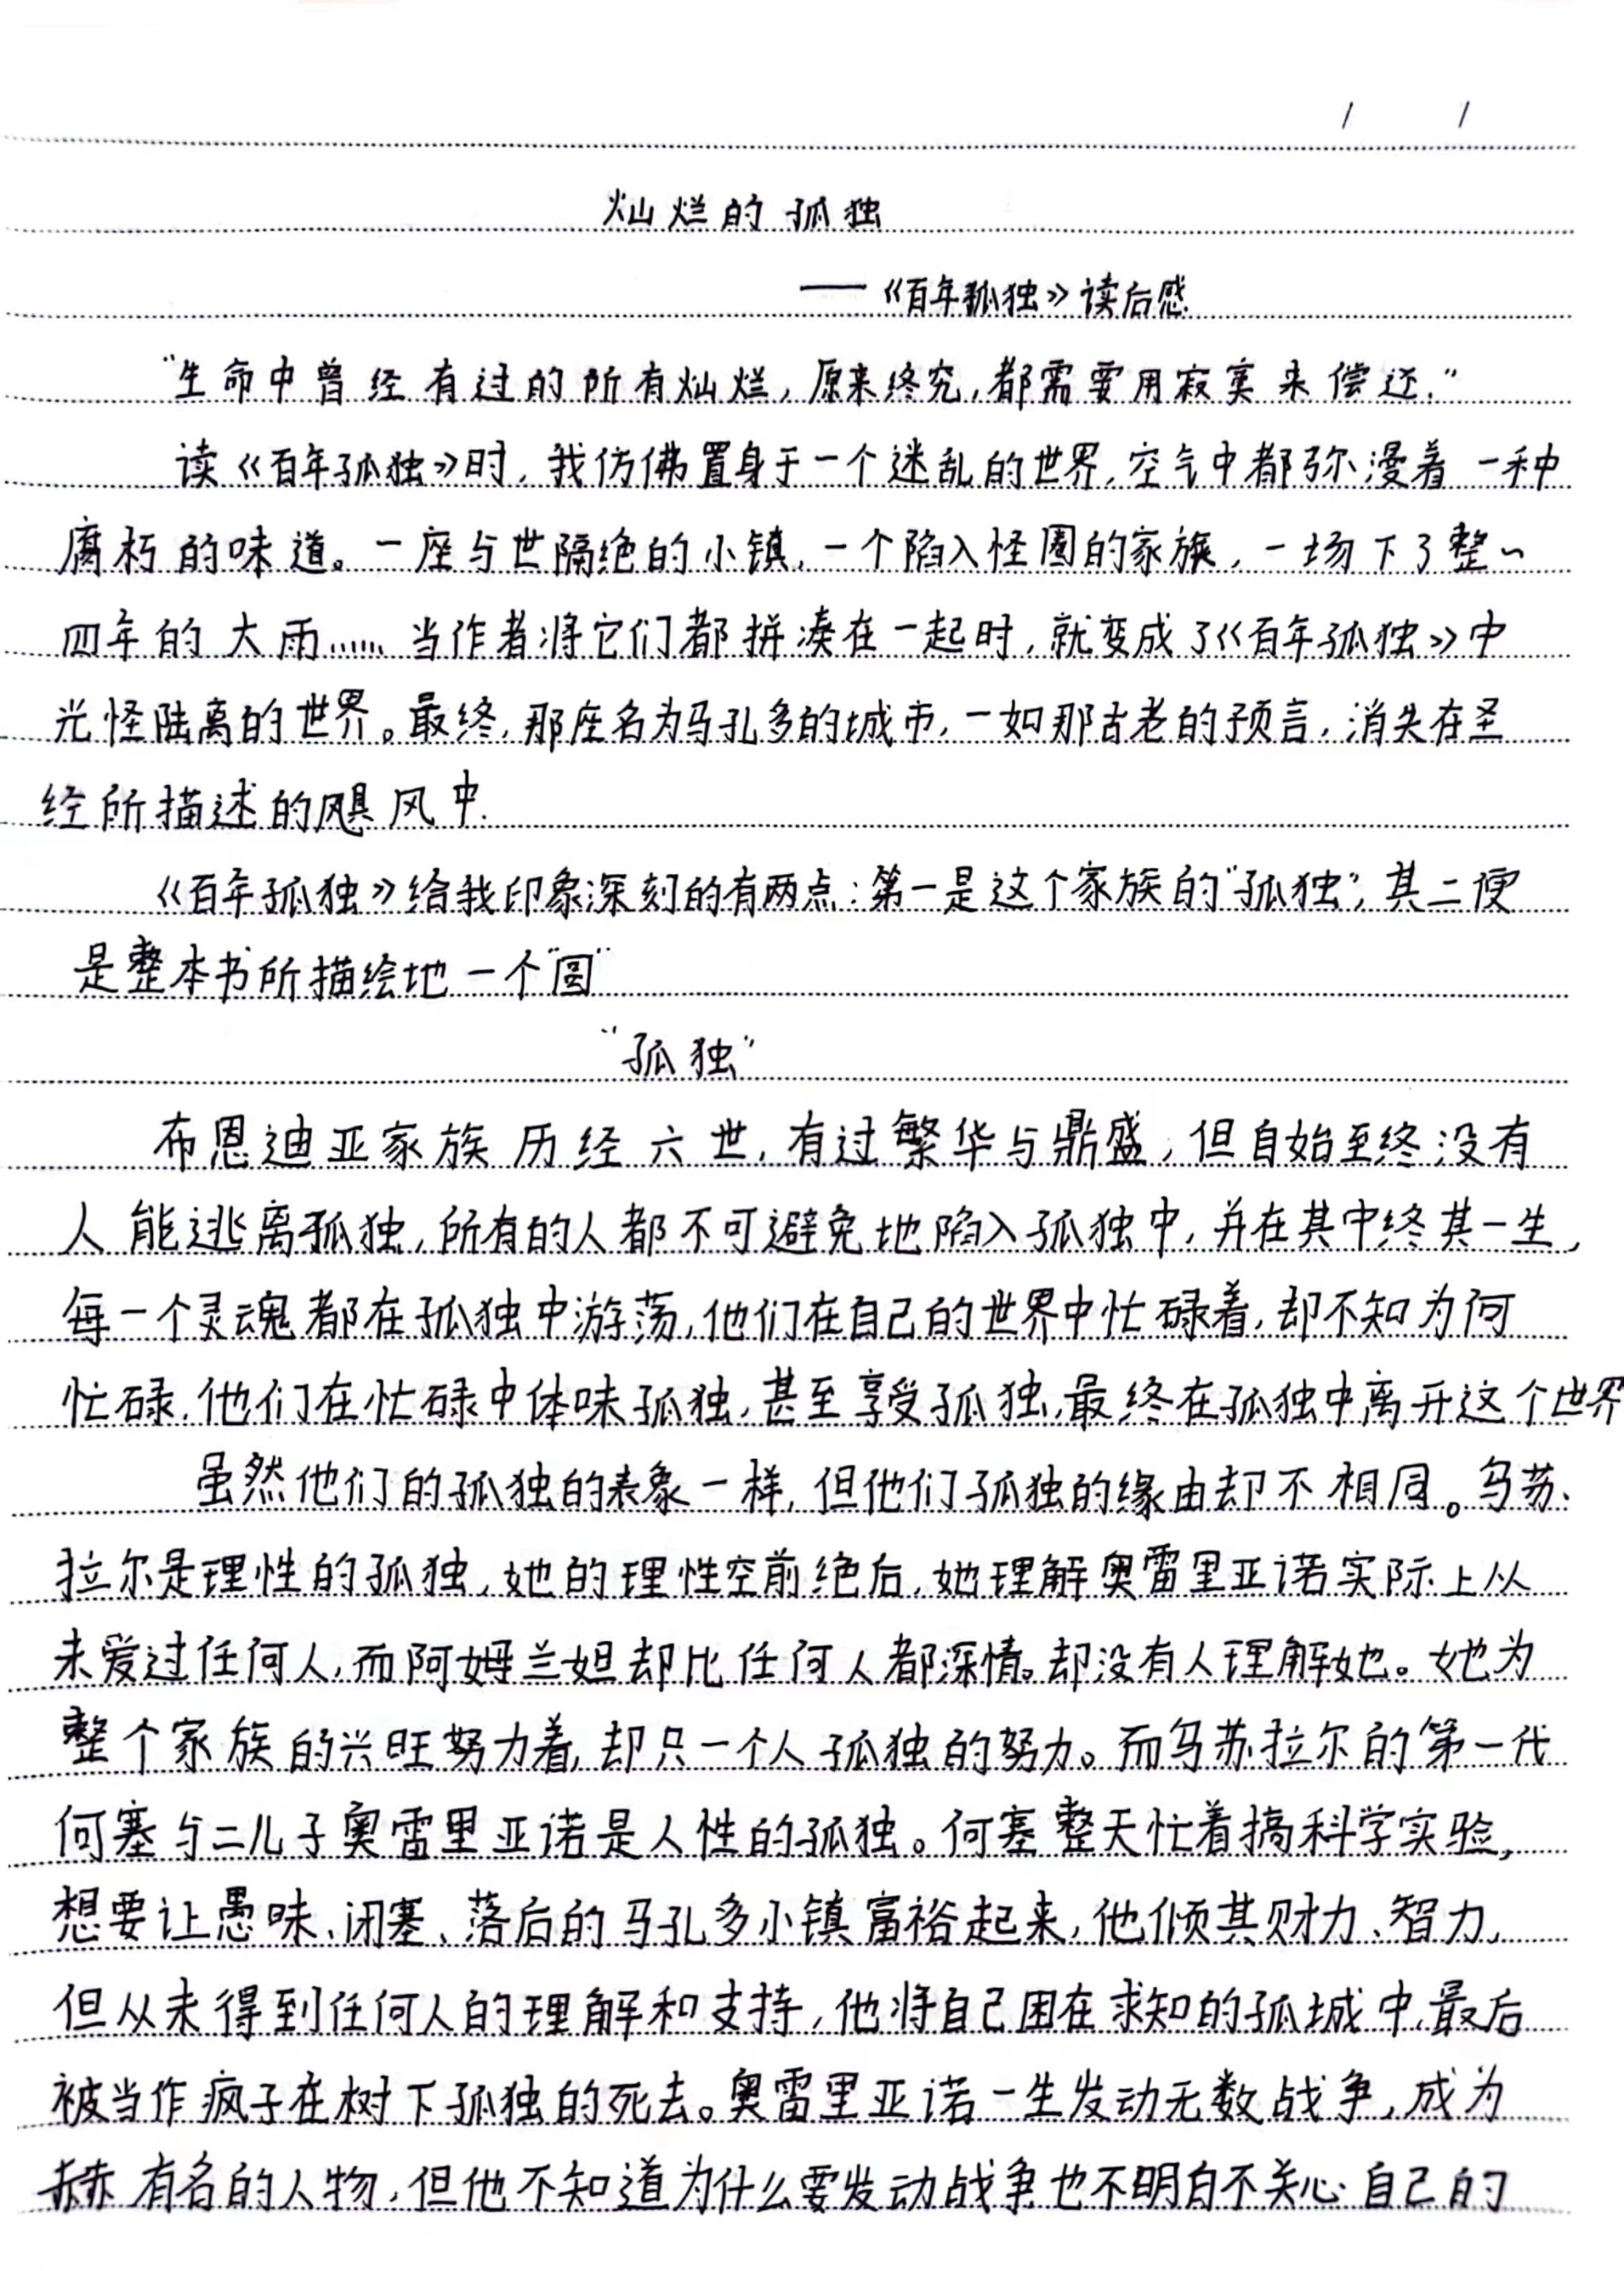 灿烂的孤独
——《百年孤独》读后感
“生命中曾经有过的所有灿烂，原来终究，都需要用寂寞来偿还.”
读《百年孤独》时，我仿佛置身于一个迷乱的世界，空气中都弥漫着一种
腐朽的味道。一座与世隔绝的小镇，一个陷入怪圈的家族，一场下了整~
四年的大雨……当作者将它们都拼凑在一起时，就变成了《百年孤独》中
光怪陆离的世界。最终，那座名为马孔多的城市，一如那古老的预言，消失在圣
经所描述的飓风中.
《百年孤独》给我印象深刻的有两点：第一是这个家族的“孤独”；其二便
是整本书所描绘地一个“圆”
“孤独”
布恩迪亚家族历经六世，有过繁华与鼎盛，但自始至终没有
人能逃离孤独，所有的人都不可避免地陷入孤独中，并在其中终其一生，
每一个灵魂都在孤独中游荡，他们在自己的世界中忙碌着，却不知为何
忙碌，他们在忙碌中体味孤独，甚至享受孤独，最终在孤独中离开这个世界
虽然他们的孤独的表象一样，但他们孤独的缘由却不相同。乌苏
拉尔是理性的孤独，她的理性空前绝后，她理解奥雷里亚诺实际上从
未爱过任何人，而阿姆兰妲却比任何人都深情。却没有人理解她。她为
整个家族的兴旺努力着，却只一个人孤独的努力。而乌苏拉尔的第一代
何塞与二儿子奥雷里亚诺是人性的孤独。何塞整天忙着搞科学实验，
想要让愚昧、闭塞、落后的马孔多小镇富裕起来，他倾其财力、智力，
但从未得到任何人的理解和支持，他将自己困在求知的孤城中，最后
被当作疯子在树下孤独的死去。奥雷里亚诺一生发动无数战争，成为
赫赫有名的人物，但他不知道为什么要发动战争也不明白不关心自己的